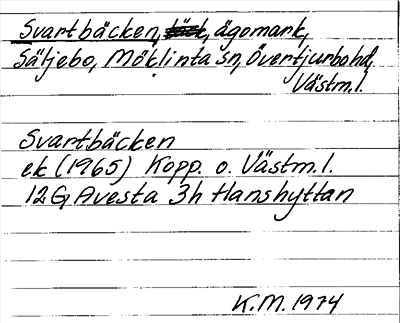 Svartbäcken, bäck, ägomark,
Säljebo, Möklinta sn, Övertjurbo hd,
Västm.l.
Svartbäcken
ek (1965) Kopp. o. Västm.l.
12G Avesta 3h Hanshyttan
K.M. 1974